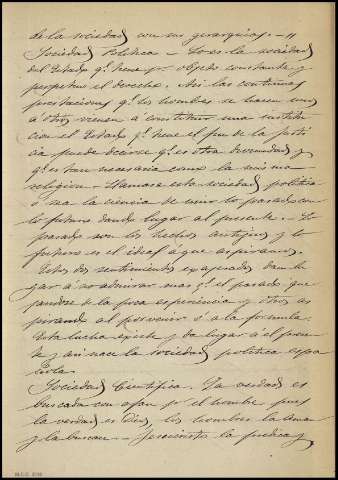 de la sociedad con sus gerarquias. — "
Sociedad Politica — Lo es la sociedad
del Estado qe. tiene pr. objeto constante y
perpetuo el derecho. Asi las continuas
prestaciones qe. los hombres se hacen unos
á otros vienen á constituir una institu
cion el Estado qe. tiene el fin de la justi
cia puede decirse qe. es otra divinidad y
qe. es tan necesaria como la misma
religion — Llamase esta sociedad politica
ó sea la ciencia de unir lo pasado con
lo futuro dando lugar al presente. — Lo
pasado son los hechos antiguos y lo
futuro es el ideal á que aspiramos.
Estos dos sentimientos exagerados dan lu
gar á no admirar mas qe. el pasado, que
dandose de la pura esperiencia y otros as
pirando al porvenir ó á la formula.
Esta lucha existe y da lugar á el presen
te y asi nace la sociedad politica espa
ñola.
Sociedad Cientifica. La verdad es
buscada con afan pr. el hombre pues
la verdad es Dios, los hombres la aman
y la buscan — Jesucristo la predica y